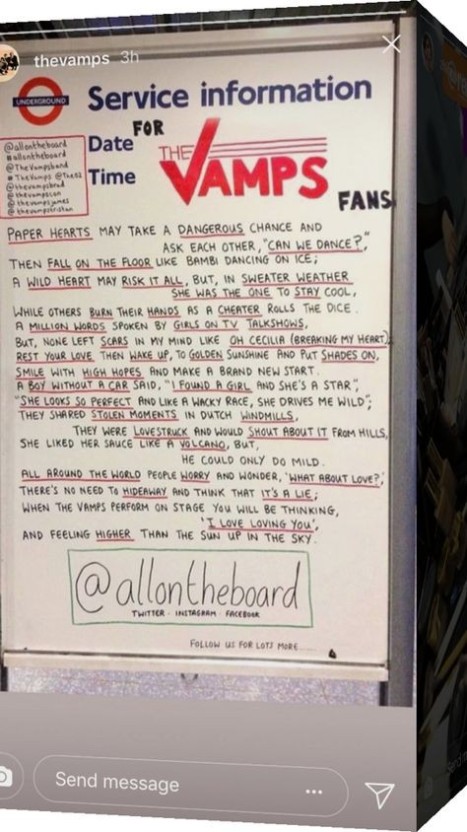 thevamps 3h
UNDERGROUND
Service information
Date FOR
Time
THE VAMPS
FANS
@allontheboard
#allontheboard
@TheVampsband
#TheVamps @TheV2
@thevampsbrad
@thevampscon
@thevampsjames
@thevampstristan
PAPER HEARTS MAY TAKE A DANGEROUS CHANCE AND
ASK EACH OTHER, "CAN WE DANCE?",
THEN FALL ON THE FLOOR LIKE BAMBI DANCING ON ICE;
A WILD HEART MAY RISK IT ALL, BUT, IN SWEATER WEATHER
SHE WAS THE ONE TO STAY COOL,
WHILE OTHERS BURN THEIR HANDS AS A CHEATER ROLLS THE DICE.
A MILLION WORDS SPOKEN BY GIRLS ON TV TALKSHOWS,
BUT, NONE LEFT SCARS IN MY MIND LIKE OH CECILIA (BREAKING MY HEART)
REST YOUR LOVE THEN WAKE UP, TO GOLDEN SUNSHINE AND PUT SHADES ON,
SMILE WITH HIGH HOPES AND MAKE A BRAND NEW START.
A BOY WITHOUT A CAR SAID, "I FOUND A GIRL AND SHE'S A STAR",
"SHE LOOKS SO PERFECT AND LIKE A WACKY RACE, SHE DRIVES ME WILD";
THEY SHARED STOLEN MOMENTS IN DUTCH WINDMILLS,
THEY WERE LOVESTRUCK AND WOULD SHOUT ABOUT IT FROM HILLS,
SHE LIKED HER SAUCE LIKE A VOLCANO, BUT,
HE COULD ONLY DO MILD.
ALL AROUND THE WORLD PEOPLE WORRY AND WONDER, 'WHAT ABOUT LOVE?',
THERE'S NO NEED TO HIDEAWAY AND THINK THAT IT'S A LIE;
WHEN THE VAMPS PERFORM ON STAGE YOU WILL BE THINKING,
'I LOVE LOVING YOU',
AND FEELING HIGHER THAN THE SUN UP IN THE SKY.
@allontheboard
TWITTER · INSTAGRAM · FACEBOOK
FOLLOW US FOR LOTS MORE
Send message